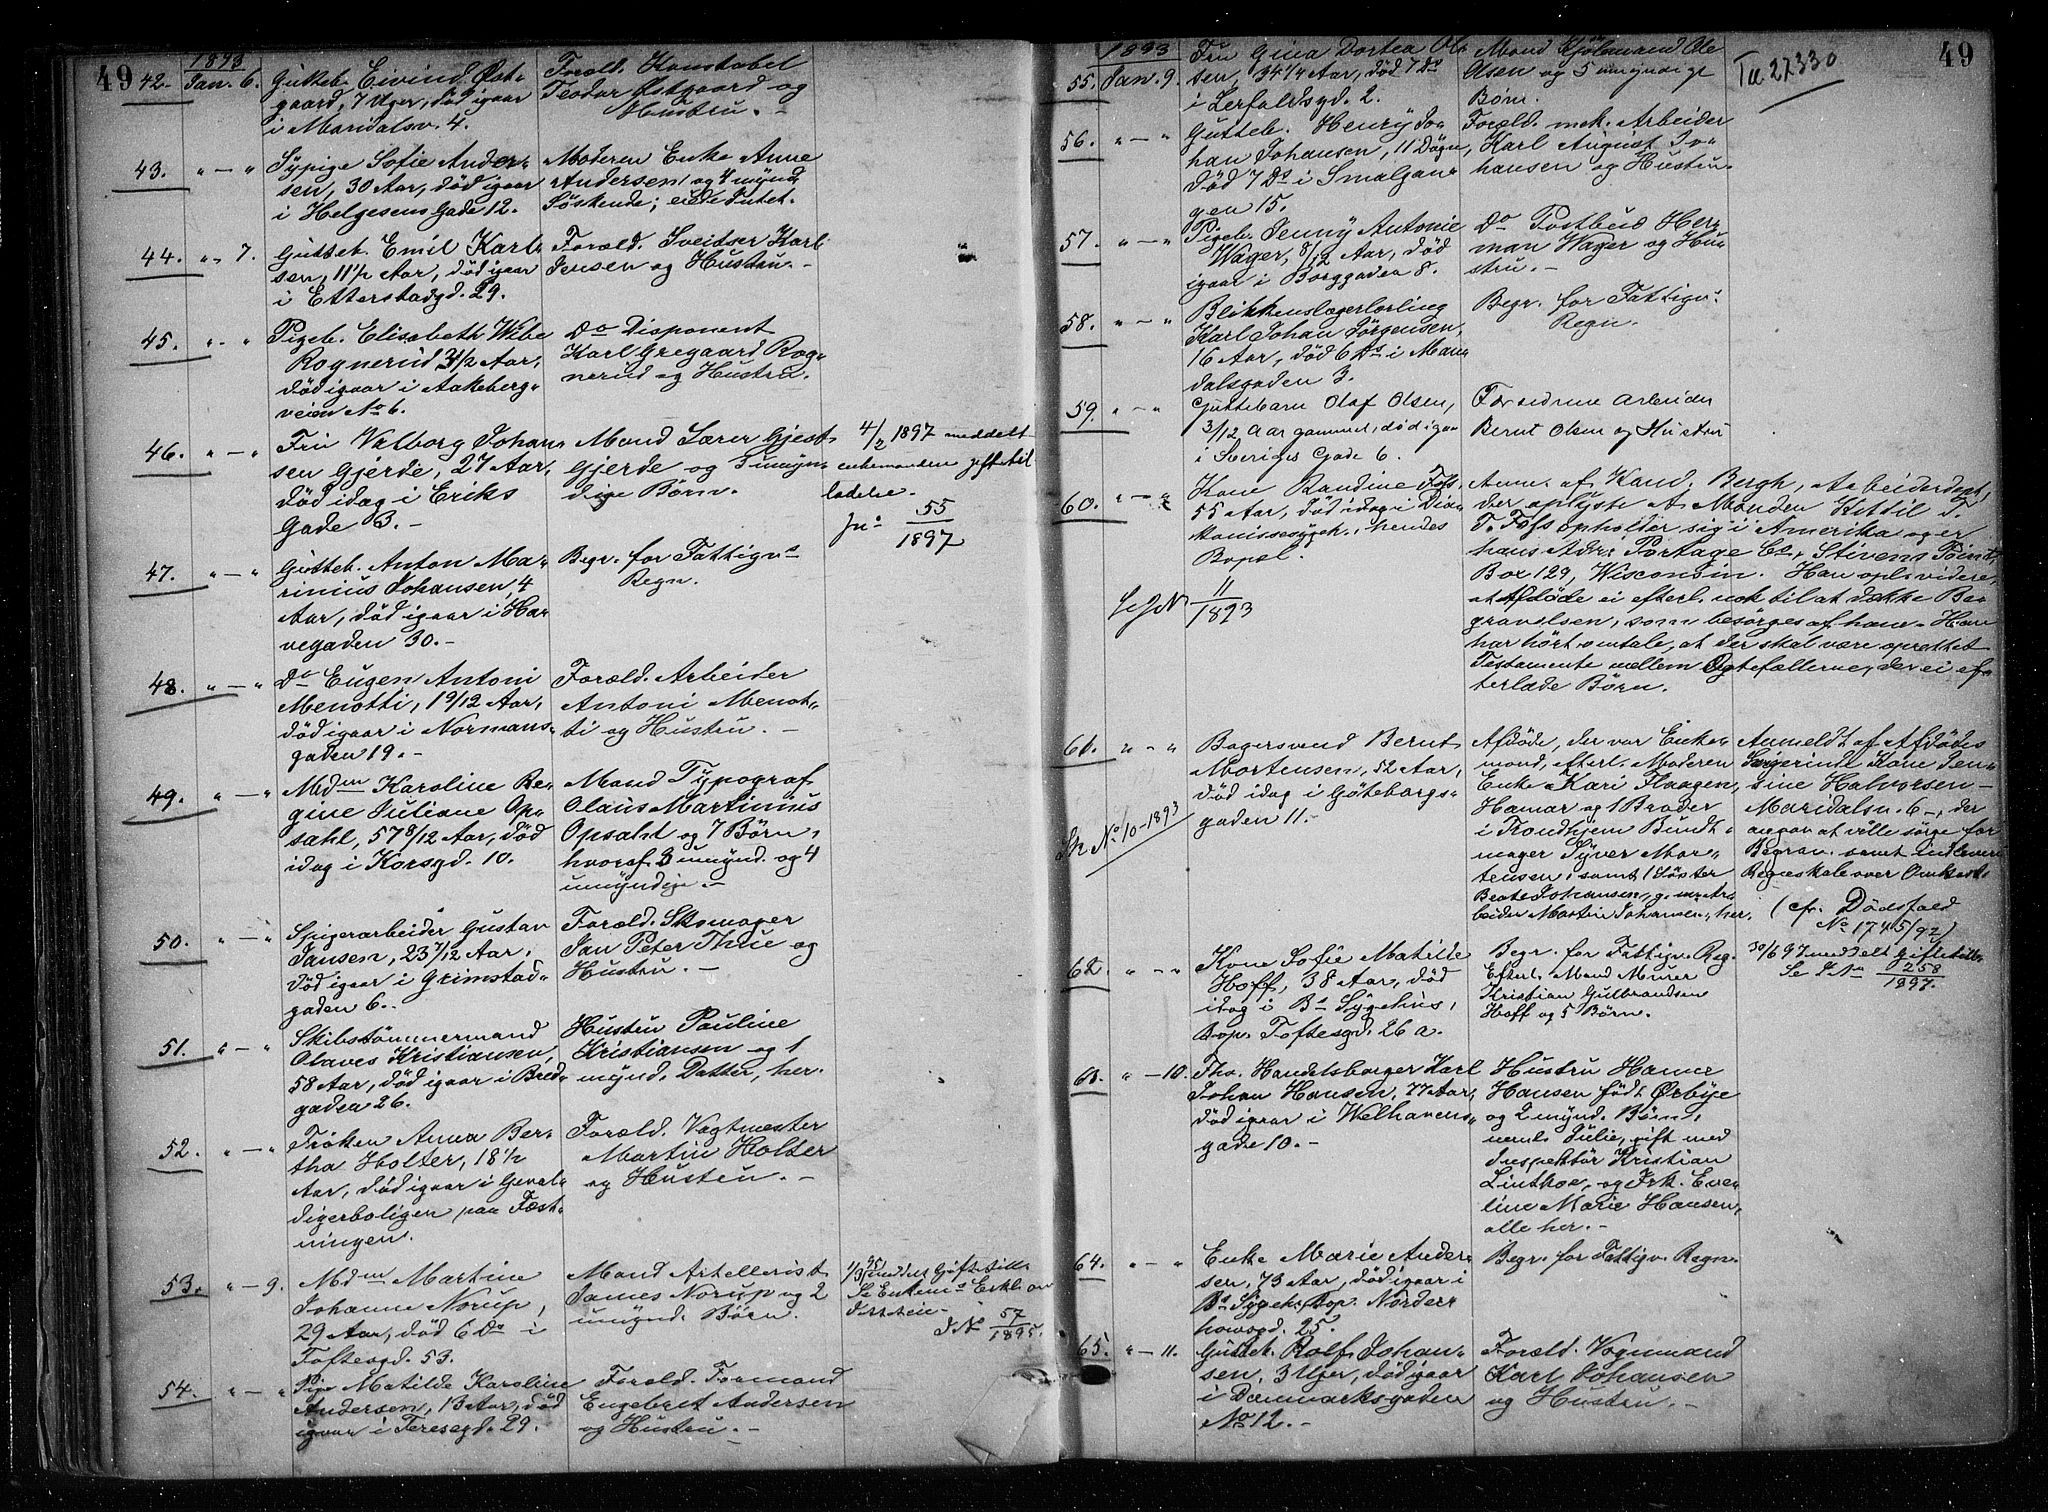 49
1893
42. Jan. 6. Gutteb. Eivind Øst-
gaard, 7 Uger, død igaar
i Maridalsv. 4.
Foræld. Konstabel
Teodor Østgaard og
Hustru. -
43. " - " Sypige Sofie Ander-
sen, 30 Aar, død igaar
i Helgesens Gade 12.
Moderen Enke Anne
Andersen og 4 mynd.
Søskende; eiede Intet.
44. " - 7. Gutteb. Emil Karl
sen, 11 1/2 Aar, død igaar
i Etterstadgd. 29.
Foræld. Sveitser Karl
Jensen og Hustru. -
45. " - " Pigeb. Elisabeth Wibe
Rognerud 3 1/2 Aar,
død igaar i Aakeberg-
veien No 6.
Do Disponent
Karl Gregaard Rog-
nerud og Hustru.
46. " - " Fru Valborg Johan
sen Gjerde, 27 Aar,
død idag i Eriks
Gade 3. -
Mand Lærer Gjest
Gjerde og 3 umyn-
dige Børn.
4/2 1897 meddelt
enkemanden giftetil
ladelse.
Jno 55
1897
47. " - " Gutteb. Anton Ma-
rinius Johansen, 4
Aar, død igaar i Ha-
vegaden 30. -
Begr. for Fattigvs
Regn.
48. " - " Do Eugen Antoni
Menotti, 1 9/12 Aar,
død igaar i Normans-
gaden 19. -
Foræld. Arbeider
Antoni Menot-
ti og Hustru. -
49. " - " Mdm Karoline Re-
gine Juliane Op-
sahl, 57 8/12 Aar, død
idag i Korsgd. 10.
Mand Typograf
Olaus Martinius
Opsahl og 7 Børn,
hvoraf 3 mynd. og 4
umyndige -
50. " - " Spigerarbeider Gustav
Jansen, 23 7/12 Aar,
død igaar i Grimstad-
gaden 6.
Foræld. Skomager
Jan Peter Thue og
Hustru. -
51. " - " Skibstømmermand
Olaves Kristiansen,
58 Aar, død igaar i Bred-
gaden 26.
Hustru Pauline
Kristiansen og 1
mynd. Datter, her.
52. " - " Frøken Anna Ber-
tha Holter, 18 1/2
Aar, død igaar i Geval-
digerboligen paa Fæst-
ningen.
Foræld. Vagtmester
Martin Holter
og Hustru. -
53. " - 9. Mdm Martine
Johanne Norup,
29 Aar, død 6 Ds i
Toftesgd. 53.
Mand Artellerist
James Norup og 2
umynd. Børn.
1/3 95 meddelt Giftetill.
Se Enkem.s Erklær.
JNo 57
1895.
54. " - " Pige Matilde Karoline
Andersen, 13 Aar, død
igaar i Teresegd. 29.
Foræld. Formand
Engebret Andersen
og Hustru. -
49
1893
55. Jan. 9. Fru Gina Dortea Ol-
sen, 34 1/4 Aar, død 7 Ds
i Lerfaldsgd. 2.
Mand Kjølmand Ole
Olsen og 5 umyndige
Børn.
Tu. 27330
56. " - " Gutteb. Henry Jo-
han Johansen, 11 Døgn,
død 7 Ds i Smalgan-
gen 15.
Foræld. mek. Arbeider
Karl August Jo-
hansen og Hustru.
57. " - " Pigeb. Jenny Antonie
Wager, 8/12 Aar, død
igaar i Borggaden 8.
Do Postbud Her-
man Wager og Hu-
stru. -
58. " - " Blikkenslagerlærling
Karl Johan Jørgensen,
16 Aar, død 6 Ds i Man-
dalsgaden 3.
Begr. for Fattigv.
Regn.
59. " - " Guttebarn Olaf Olsen,
3/12 Aar gammel, død igaar
i Sveriges Gade 6.
Forældrene Arbeider
Bernt Olsen og Hustru
60. " - " Kone Randine Foss,
55 Aar, død idag i Dia-
konissesygeh., hendes
Bopæl.
SeJNo 11
1893
Anm. af Kand. Bergh, Arbeiderdept,
der oplyste At Manden Ketil T.
T. Foss opholder sig i Amerika og er
hans Adr: Portage Co, Stivens Point,
Box 129, Wisconsin. Han opl. videre,
at Afdøde ei efterl. nok til at dække Be-
gravelsen, som besørges af ham. Han
har hørt omtale, at der skal være oprettet
Testamente mellem Ægtefællerne, der ei ef-
terlade Børn.
61. " - " Bagersvend Bernt
Mortensen, 52 Aar,
død idag i Göteborgs-
gaden 11. -
Sk No 10-1893
Afdøde, der var Enke-
mand, efterl. Moderen
Enke Kari Haagen,
Hamar og 1 Broder
i Trondhjem Bundt-
mager Syver Mor-
tensen, samt 1 Søster
Beate Johansen, g. m. Ar-
beider Martin Johansen, her.
Anmeldt af Afdødes
Logerinde Kone Jen-
sine Halvorsen -
Maridalsv. 6 -, der
angav at ville sørge for
Begrav. samt indlevere
Regnskab over Omkostn.
(cfr. Dødsfald
No 1745/92)
62. " - " Kone Sofie Matilde
Hoff, 38 Aar, død
idag i Bs Sygehus,
Bop. Toftesgd. 26 a.
Begr. for Fattigv. Reg.
Efterl. Mand Murer
Kristian Gulbrandsen
Hoff og 5 Børn.
30/6 97 meddelt Giftetill.
Se JNo 258
1897.
63. " - 10. Fhv. Handelsborger Karl
Johan Hansen, 77 Aar,
død igaar i Welhavens-
gade 10. -
Hustru Hanne
Hansen født Ørbye
og 2 mynd. Børn,
nemlig Julie, gift med
Inspektør Kristian
Linthoe, og Frk. Eve-
line Marie Hansen,
alle her. -
64. " - " Enke Marie Ander-
sen, 73 Aar, død igaar i
Bs Sygeh., Bop. Norder-
hovsgd. 25.
Begr. for Fattigv. Regn.
65. " - 11. Gutteb. Rolf Johan-
sen, 3 Uger, død igaar
i Danmarksgaden
No 12. -
Foræld. Vognmand
Karl Johansen
og Hustru. -